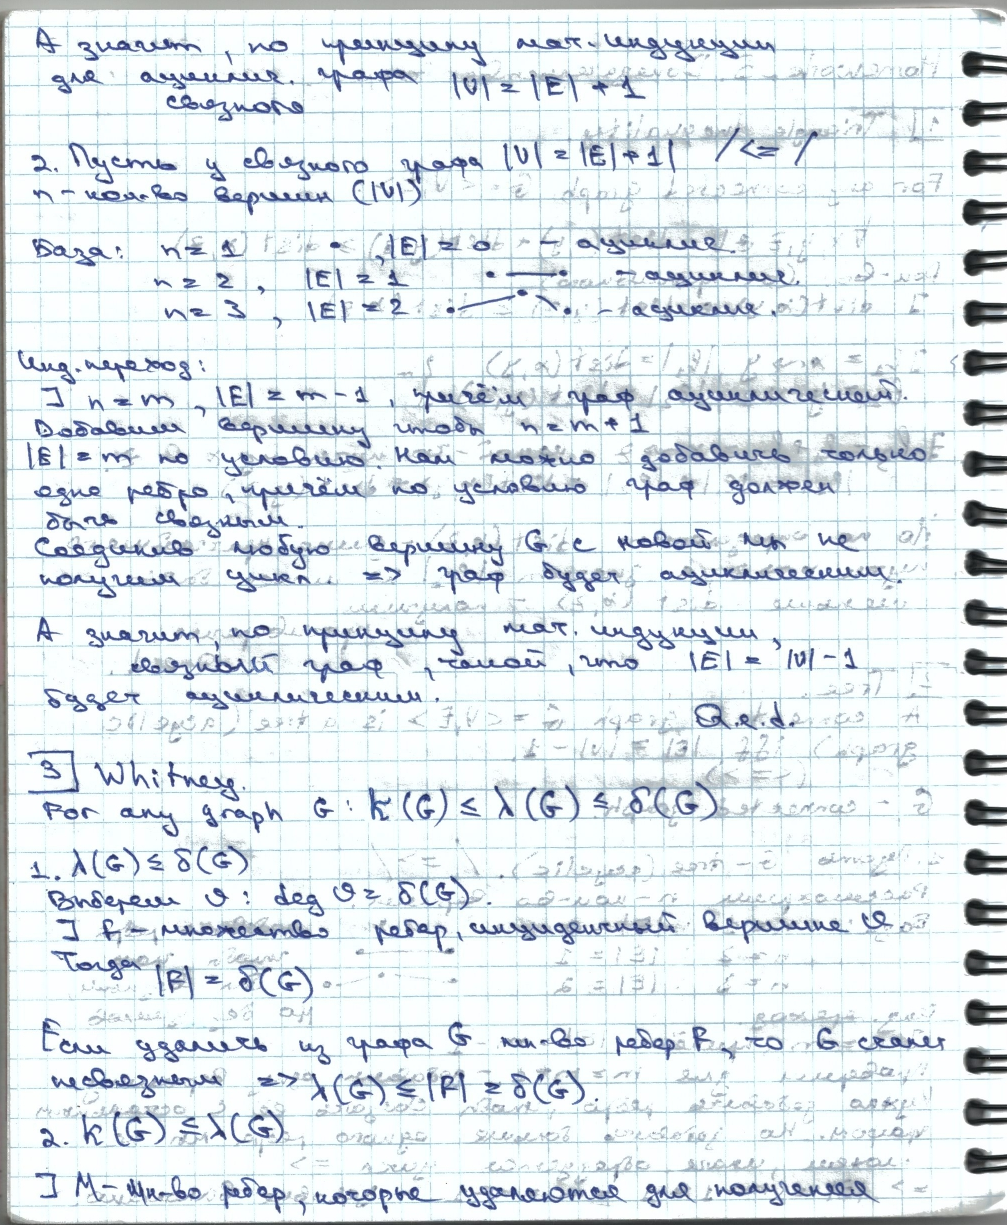 А значит, по принципу мат. индукции
для ациклич. графа |V| = |E| + 1
связного
2. Пусть у связного графа |V| = |E| + 1| /<= /
n - кол-во вершин (|V|)
База: n = 1 , |E| = 0 - ациклич.
n = 2 , |E| = 1 - ациклич.
n = 3 , |E| = 2 - ациклич.
Инд. переход:
] n = m , |E| = m - 1 , причём граф ациклический.
Добавим вершину чтобы n = m + 1
|E| = m по условию. Нам можно добавить только
одно ребро, причём по условию граф должен
быть связным.
Соединив любую вершину G с новой мы не
получим цикл. => граф будет ациклическим.
А значит, по принципу мат. индукции,
связный граф , такой , что |E| = |V| - 1
будет ациклическим.
Q.e.d.
3 Whitney.
For any graph G : K(G) ≤ λ(G) ≤ δ(G)
1. λ(G) ≤ δ(G)
Выберем v : deg v = δ(G).
] R - множество ребер, инцидентный вершине v.
Тогда
|R| = δ(G).
Если удалить из графа G мн-во ребер R, то G станет
несвязным => λ(G) ≤ |R| = δ(G).
2. K(G) ≤ λ(G)
] M - мн-во ребер, которые удаляются для получения